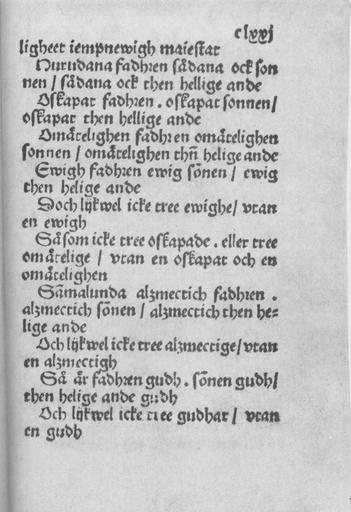 clxxj
ligheet iempnewigh maiestat
Hurudana fadhren sådana ock son
nen / sådana ock then hellige ande
Oskapat fadhren . oskapat sonnen /
oskapat then hellige ande
Omätelighen fadhren omätelighen
sonnen / omätelighen thñ helige ande
Ewigh fadhren ewig sonen / ewig
then helige ande
Doch lijkwel icke tree ewighe / vtan
en ewigh
Såsom icke tree oskapade . eller tree
omätelige / vtan en oskapat och en
omätelighen
Samalunda alzmectich fadhren .
alzmectich sonen / alzmectich then he=
lige ande
Och lijkwel icke tree alzmectige / vtan
en alzmectigh
Så är fadhren gudh . sonen gudh /
then helige ande gudh
Och lijkwel icke tree gudhar / vtan
en gudh